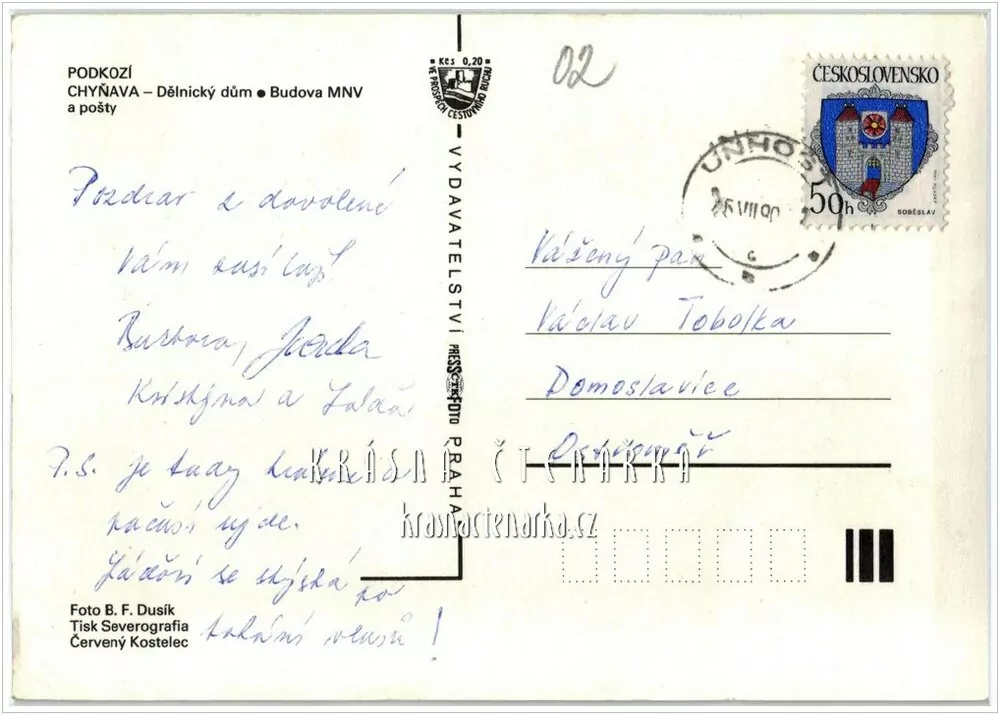 PODKOZÍ
CHYŇAVA – Dělnický dům ● Budova MNV
a pošty
Pozdrav z dovolené
Vám zasílají
Barbora, Jenda
Kristýna a
P.S. je tudy krásně a
počasí ujde.
se stýská po
vlasů!
Foto B. F. Dusík
Tisk Severografia
Červený Kostelec
Kčs 0,20
VE PROSPĚCH CESTOVNÍHO RUCHU
VYDAVATELSTVÍ PRESSFOTO PRAHA
ČTK
02
ČESKOSLOVENSKO
50h
SOBĚSLAV
UNHOŠŤ
26.VII.90
c
Vážený pan
Václav Tobolka
Domoslavice
Ostroměř
KRÁSNÁ ČTENÁŘKA
krasnactenarka.cz